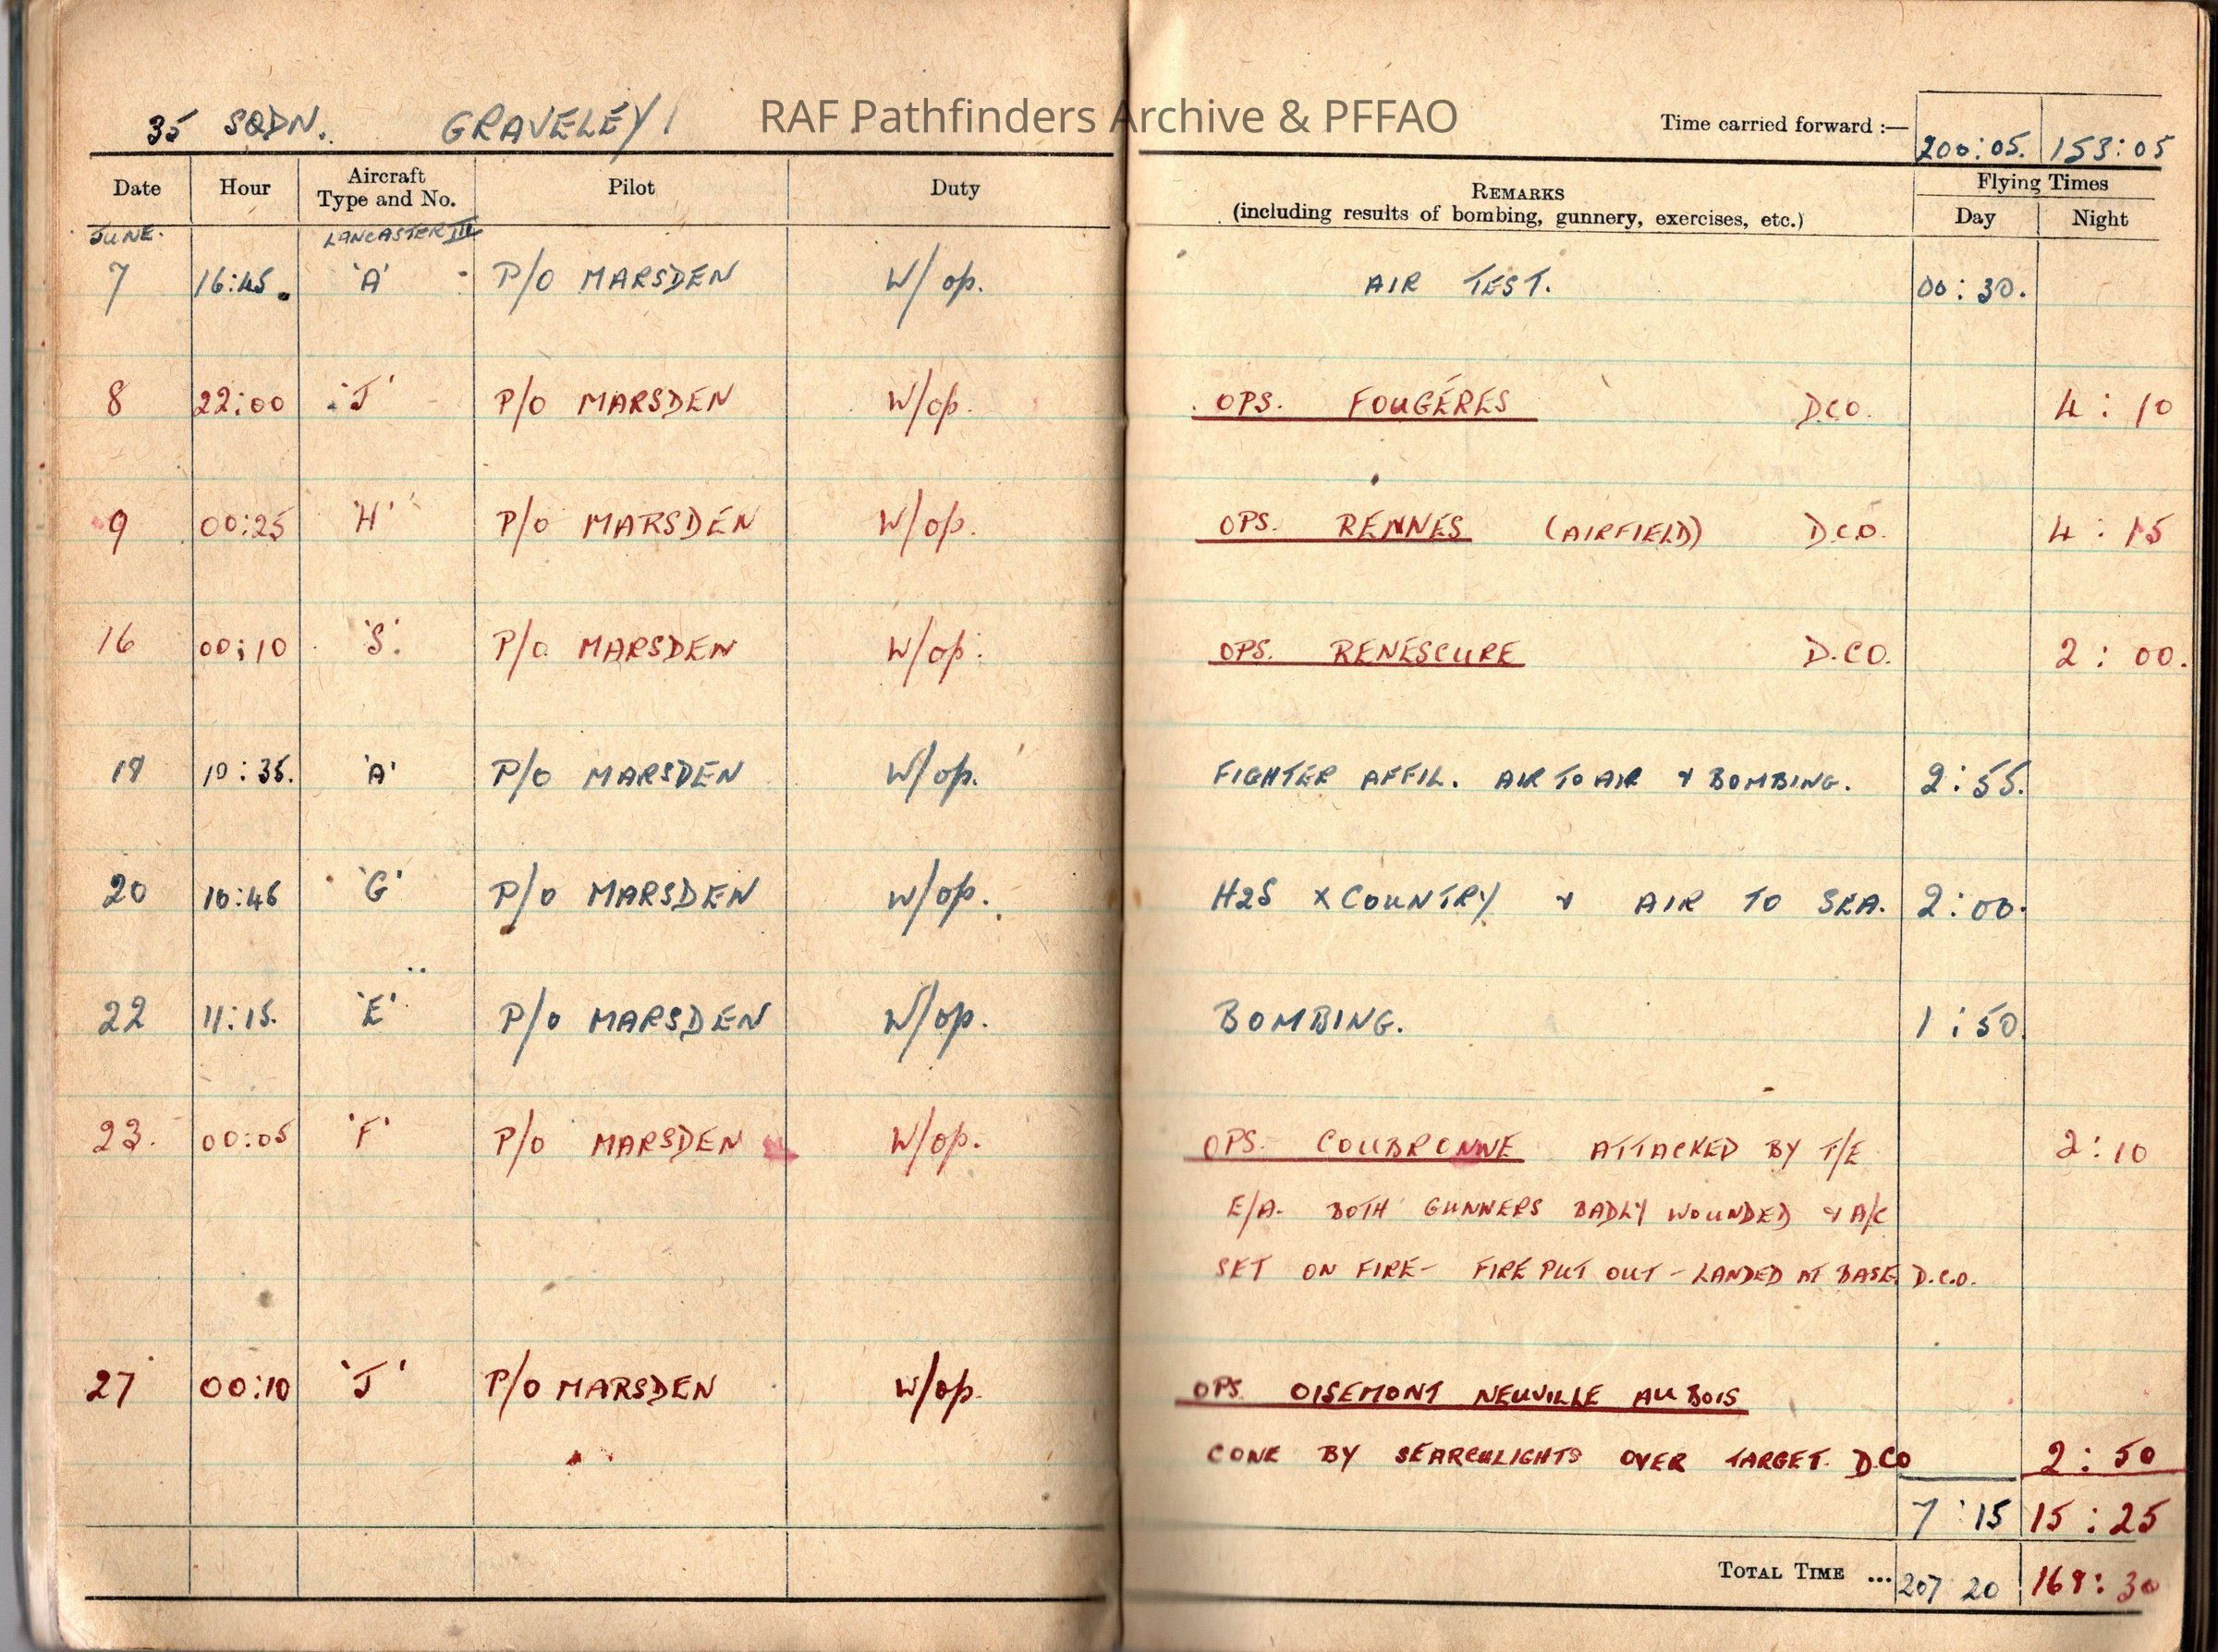 RAF Pathfinders Archive & PFFAO
35 SQDN. GRAVELEY
Time carried forward :— 200:05. 153:05
Date Hour Aircraft Type and No. Pilot Duty REMARKS (including results of bombing, gunnery, exercises, etc.) Flying Times Day Night
JUNE. LANCASTER III
7 16:45. 'A' P/O MARSDEN W/op. AIR TEST. 00:30.
8 22:00 'J' P/O MARSDEN W/op. OPS. FOUGÉRES D.C.O. 4:10
9 00:25 'H' P/O MARSDEN W/op. OPS. RENNES (AIRFIELD) D.C.O. 4:15
16 00:10 'S' P/O MARSDEN W/op. OPS. RENESCURE D.C.O. 2:00.
:35. 'A' P/O MARSDEN W/op. FIGHTER AFFIL. AIR TO AIR & BOMBING. 2:55.
20 10:45 'G' P/O MARSDEN W/op. H2S X COUNTRY & AIR TO SEA. 2:00.
22 11:15. 'E' P/O MARSDEN W/op. BOMBING. 1:50.
23. 00:05 'F' P/O MARSDEN W/op. OPS. COUBRONNE ATTACKED BY T/E 2:10
E/A. BOTH GUNNERS BADLY WOUNDED & A/C
SET ON FIRE - FIRE PUT OUT - LANDED AT BASE D.C.O.
27 00:10 'J' P/O MARSDEN W/op. OPS. OISEMONT NEUVILLE AU BOIS
CONE BY SEARCHLIGHTS OVER TARGET. D.CO 2:50
7:15 15:25
TOTAL TIME ... 207 20 168:30